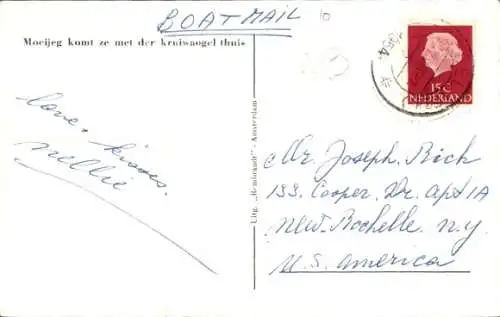 BOATMAIL
10
Moeijeg komt ze met der kruiwaogel thuis
15 C
NEDERLAND
love, kisses,
Nellie
Uitg. „Rembrandt" - Amsterdam
Mr. Joseph Rich
133 Cooper. Dr. apt 1A
New-Rochelle n.y.
U.S. america